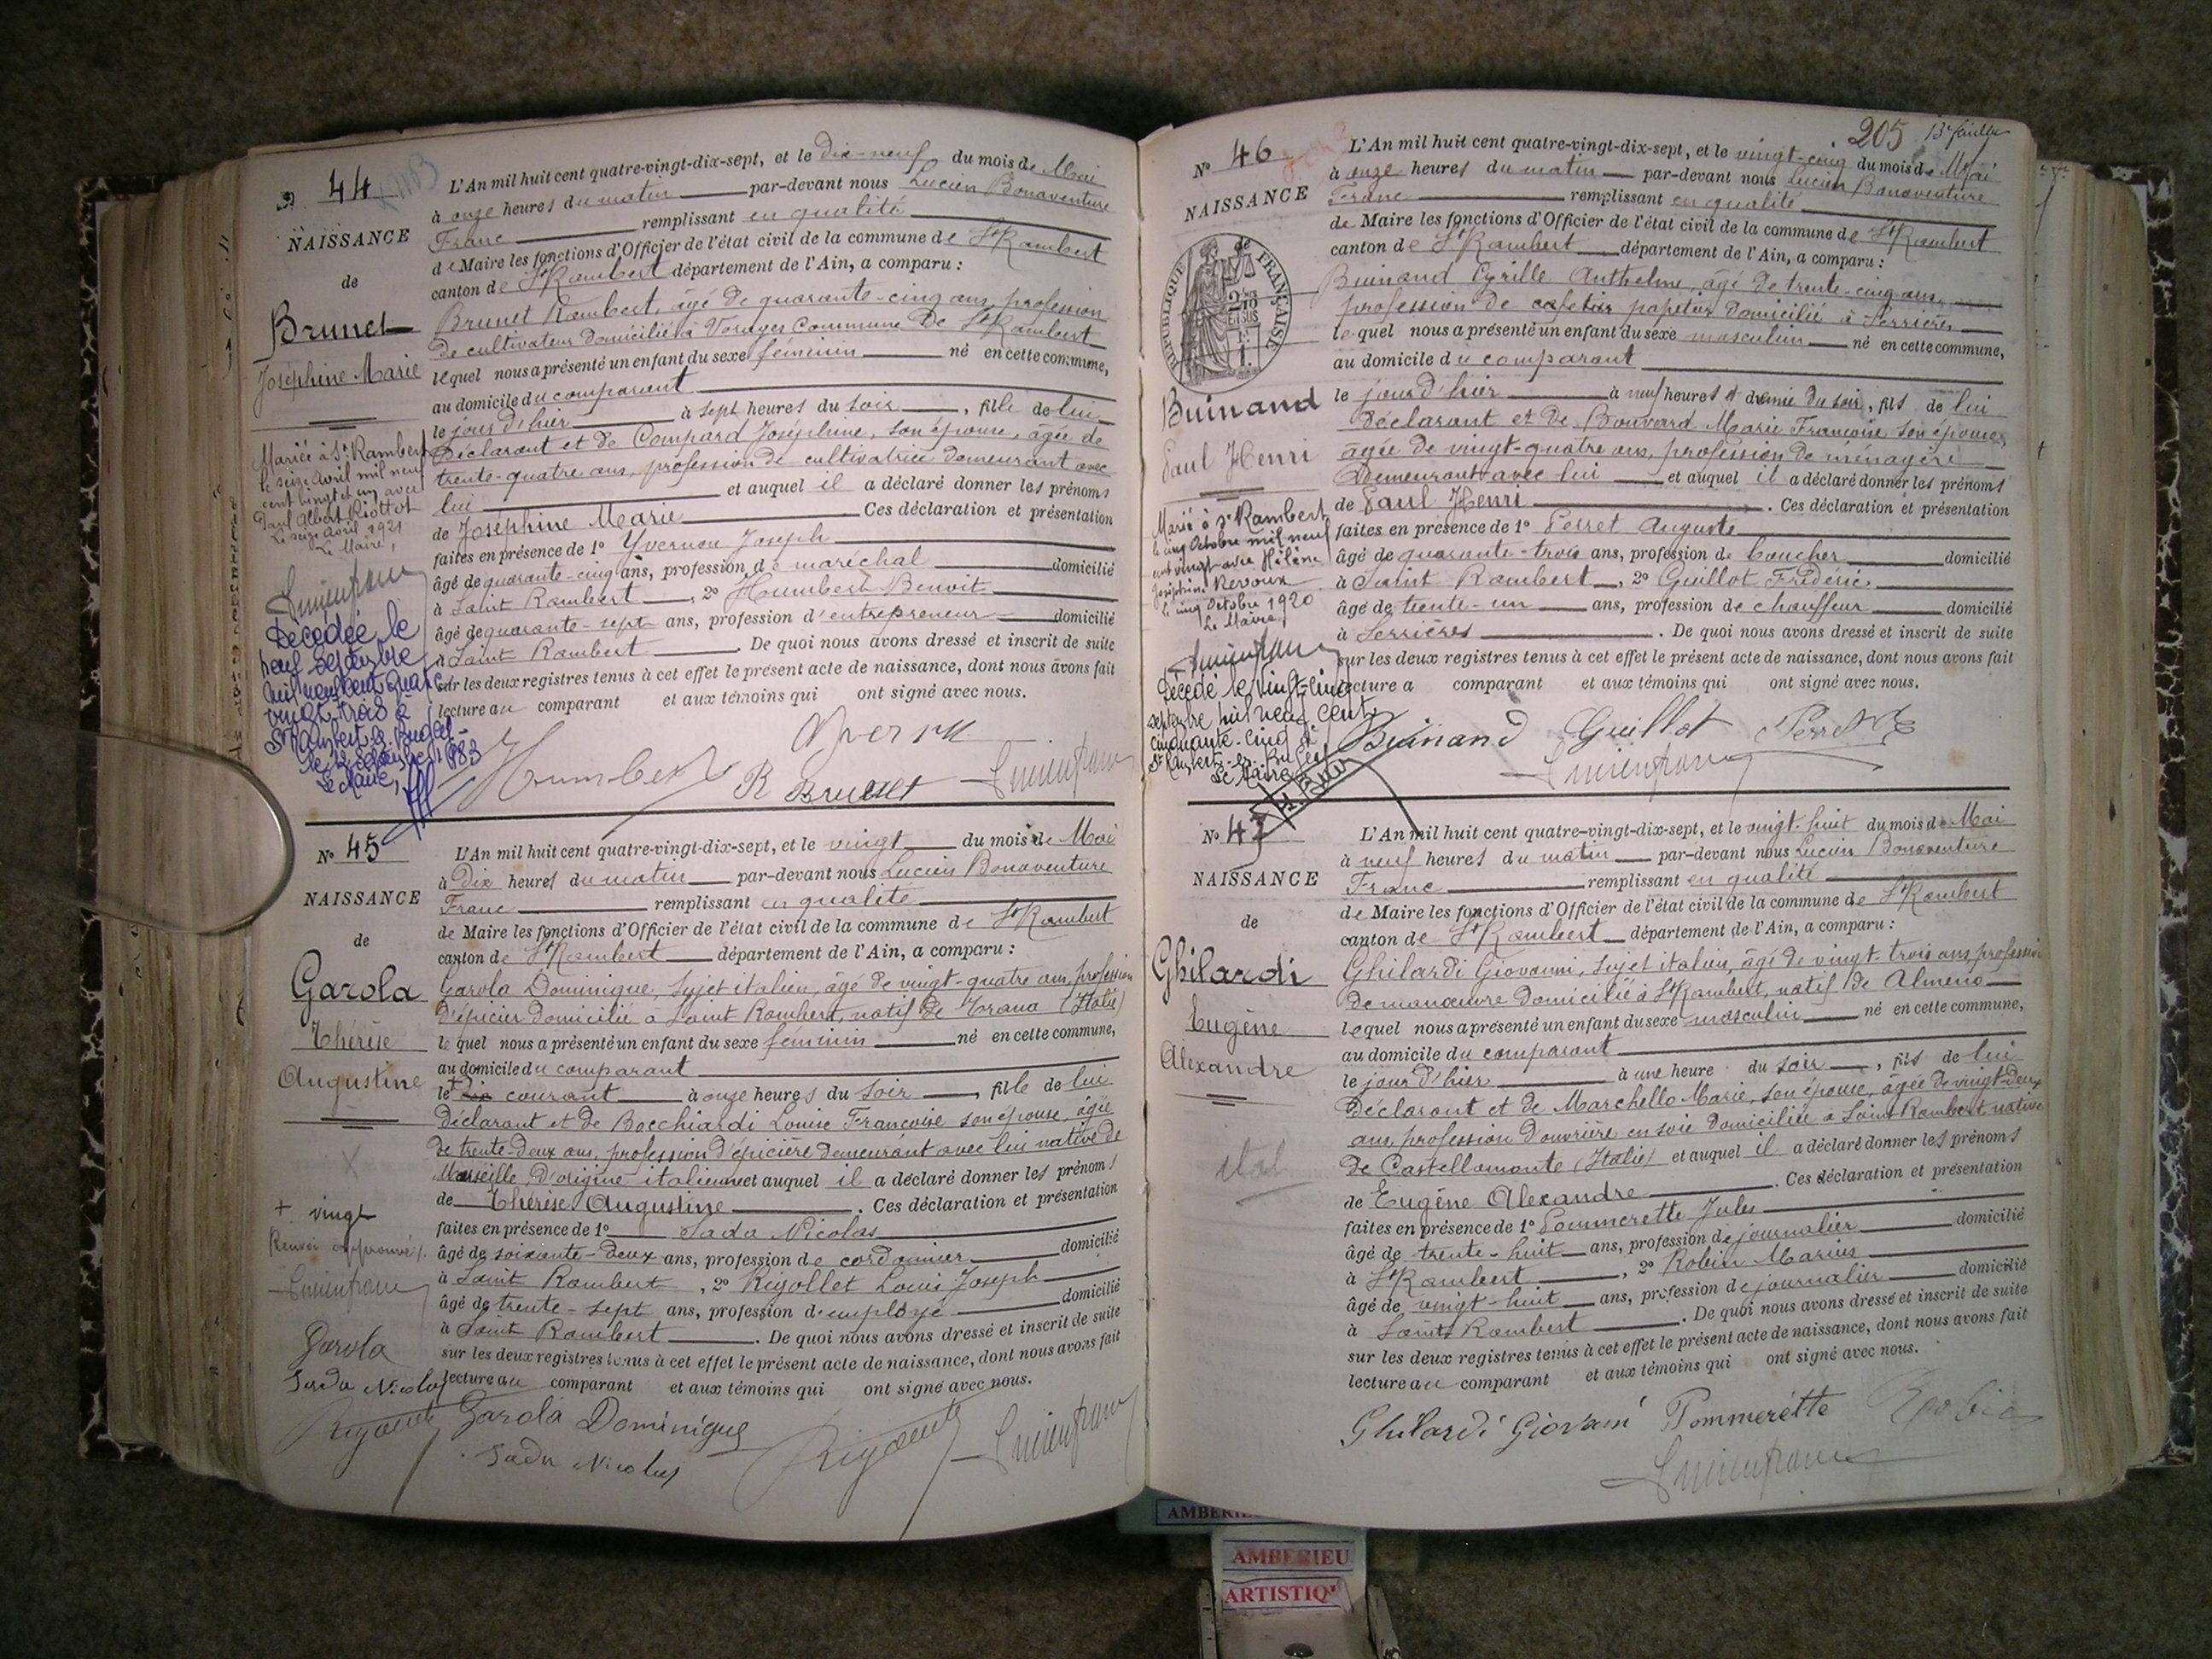 N° 44
NAISSANCE
de
Brunet
Joséphine Marie
Mariée à St Rambert
le seize Avril mil neuf
cent vingt et un avec
Paul Albert Riottot
Le seize Avril 1921
Le Maire,
Décédée le
neuf septembre
mil neuf cent quatre
vingt trois à
St Rambert en Bugey
Le Maire,
L'An mil huit cent quatre-vingt-dix-sept, et le dix-neuf du mois de Mai
à onze heures du matin par-devant nous Lucien Bonaventure
Franc remplissant en qualité
de Maire les fonctions d'Officier de l'état civil de la commune de St Rambert
canton de St Rambert département de l'Ain, a comparu :
Brunet Rambert, âgé de quarante-cinq ans, profession
de cultivateur domicilié à Vorages Commune de St Rambert
lequel nous a présenté un enfant du sexe féminin né en cette commune,
au domicile du comparant
le jour d'hier à sept heures du soir, fille de lui
Déclarant et de Compard Joséphine, son épouse, âgée de
trente-quatre ans, profession de cultivatrice demeurant avec
lui et auquel il a déclaré donner les prénoms
de Joséphine Marie Ces déclaration et présentation
faites en présence de 1° Yvernou Joseph
âgé de quarante-cinq ans, profession de maréchal domicilié
à Saint Rambert, 2° Humbert Benoit
âgé de quarante-sept ans, profession d'entrepreneur domicilié
à Saint Rambert. De quoi nous avons dressé et inscrit de suite
sur les deux registres tenus à cet effet le présent acte de naissance, dont nous avons fait
lecture au comparant et aux témoins qui ont signé avec nous.
Humbert R Brunet
N° 45
NAISSANCE
de
Garola
Thérèse
Augustine
+ vingt
Renvoi approuvé
Garola
Sada Nicolas
L'An mil huit cent quatre-vingt-dix-sept, et le vingt du mois de Mai
à Dix heures du matin par-devant nous Lucien Bonaventure
Franc remplissant en qualité
de Maire les fonctions d'Officier de l'état civil de la commune de St Rambert
canton de St Rambert département de l'Ain, a comparu :
Garola Dominique, sujet italien, âgé de vingt-quatre ans, profession
d'épicier domicilié à Saint Rambert, natif de Trana (Italie)
lequel nous a présenté un enfant du sexe féminin né en cette commune,
au domicile du comparant
le + dix courant à onze heures du soir, fille de lui
Déclarant et de Bocchiardi Louise Françoise son épouse, âgée
de trente-deux ans, profession d'épicière demeurant avec lui native de
Marseille, d'origine italienne et auquel il a déclaré donner les prénoms
de Thérèse Augustine. Ces déclaration et présentation
faites en présence de 1° Sada Nicolas
âgé de soixante-deux ans, profession de cordonnier domicilié
à Saint Rambert, 2° Rigollet Louis Joseph
âgé de trente-sept ans, profession d'employé domicilié
à Saint Rambert. De quoi nous avons dressé et inscrit de suite
sur les deux registres tenus à cet effet le présent acte de naissance, dont nous avons fait
lecture au comparant et aux témoins qui ont signé avec nous.
Garola Dominique
Sada Nicolas
205 13e feuillet
N° 46
NAISSANCE
de
RÉPUBLIQUE FRANÇAISE
Buinand
Paul Henri
Marié à St Rambert
le cinq Octobre mil neuf
cent vingt avec Hélène
Joséphine Revoux
le cinq Octobre 1920
Le Maire,
Décédé le vingt-cinq
septembre mil neuf cent
cinquante-cinq à
St Rambert-en-Bugey
Le Maire
L'An mil huit cent quatre-vingt-dix-sept, et le vingt-cinq du mois de Mai
à onze heures du matin par-devant nous Lucien Bonaventure
Franc remplissant en qualité
de Maire les fonctions d'Officier de l'état civil de la commune de St Rambert
canton de St Rambert département de l'Ain, a comparu :
Buinand Cyrille Anthelme, âgé de trente-cinq ans,
profession de cafetier papetier domicilié à Serrières
lequel nous a présenté un enfant du sexe masculin né en cette commune,
au domicile du comparant
le jour d'hier à neuf heures et demie du soir, fils de lui
déclarant et de Bouvard Marie Françoise son épouse,
âgée de vingt-quatre ans, profession de ménagère
Demeurant avec lui et auquel il a déclaré donner les prénoms
de Paul Henri. Ces déclaration et présentation
faites en présence de 1° Perret Auguste
âgé de quarante-trois ans, profession de boucher domicilié
à Saint Rambert, 2° Guillot Frédéric
âgé de trente-un ans, profession de chauffeur domicilié
à Serrières. De quoi nous avons dressé et inscrit de suite
sur les deux registres tenus à cet effet le présent acte de naissance, dont nous avons fait
lecture a comparant et aux témoins qui ont signé avec nous.
Buinand Guillot Perret
N° 47
NAISSANCE
de
Ghilardi
Eugène
Alexandre
ital
L'An mil huit cent quatre-vingt-dix-sept, et le vingt-huit du mois de Mai
à neuf heures du matin par-devant nous Lucien Bonaventure
Franc remplissant en qualité
de Maire les fonctions d'Officier de l'état civil de la commune de St Rambert
canton de St Rambert département de l'Ain, a comparu :
Ghilardi Giovanni, sujet italien, âgé de vingt-trois ans, profession
de manœuvre domicilié à St Rambert, natif de Almeno
lequel nous a présenté un enfant du sexe masculin né en cette commune,
au domicile du comparant
le jour d'hier à une heure du soir, fils de lui
Déclarant et de Marchello Marie, son épouse, âgée de vingt-deux
ans, profession d'ouvrière en soie domiciliée à Saint Rambert, native
de Castellamonte (Italie) et auquel il a déclaré donner les prénoms
de Eugène Alexandre. Ces déclaration et présentation
faites en présence de 1° Pommerette Jules
âgé de trente-huit ans, profession de journalier domicilié
à St Rambert, 2° Robin Marius
âgé de vingt-huit ans, profession de journalier domicilié
à Saint Rambert. De quoi nous avons dressé et inscrit de suite
sur les deux registres tenus à cet effet le présent acte de naissance, dont nous avons fait
lecture au comparant et aux témoins qui ont signé avec nous.
Ghilardi Giovani Pommerette Robin
AMBERIEU
ARTISTIQ